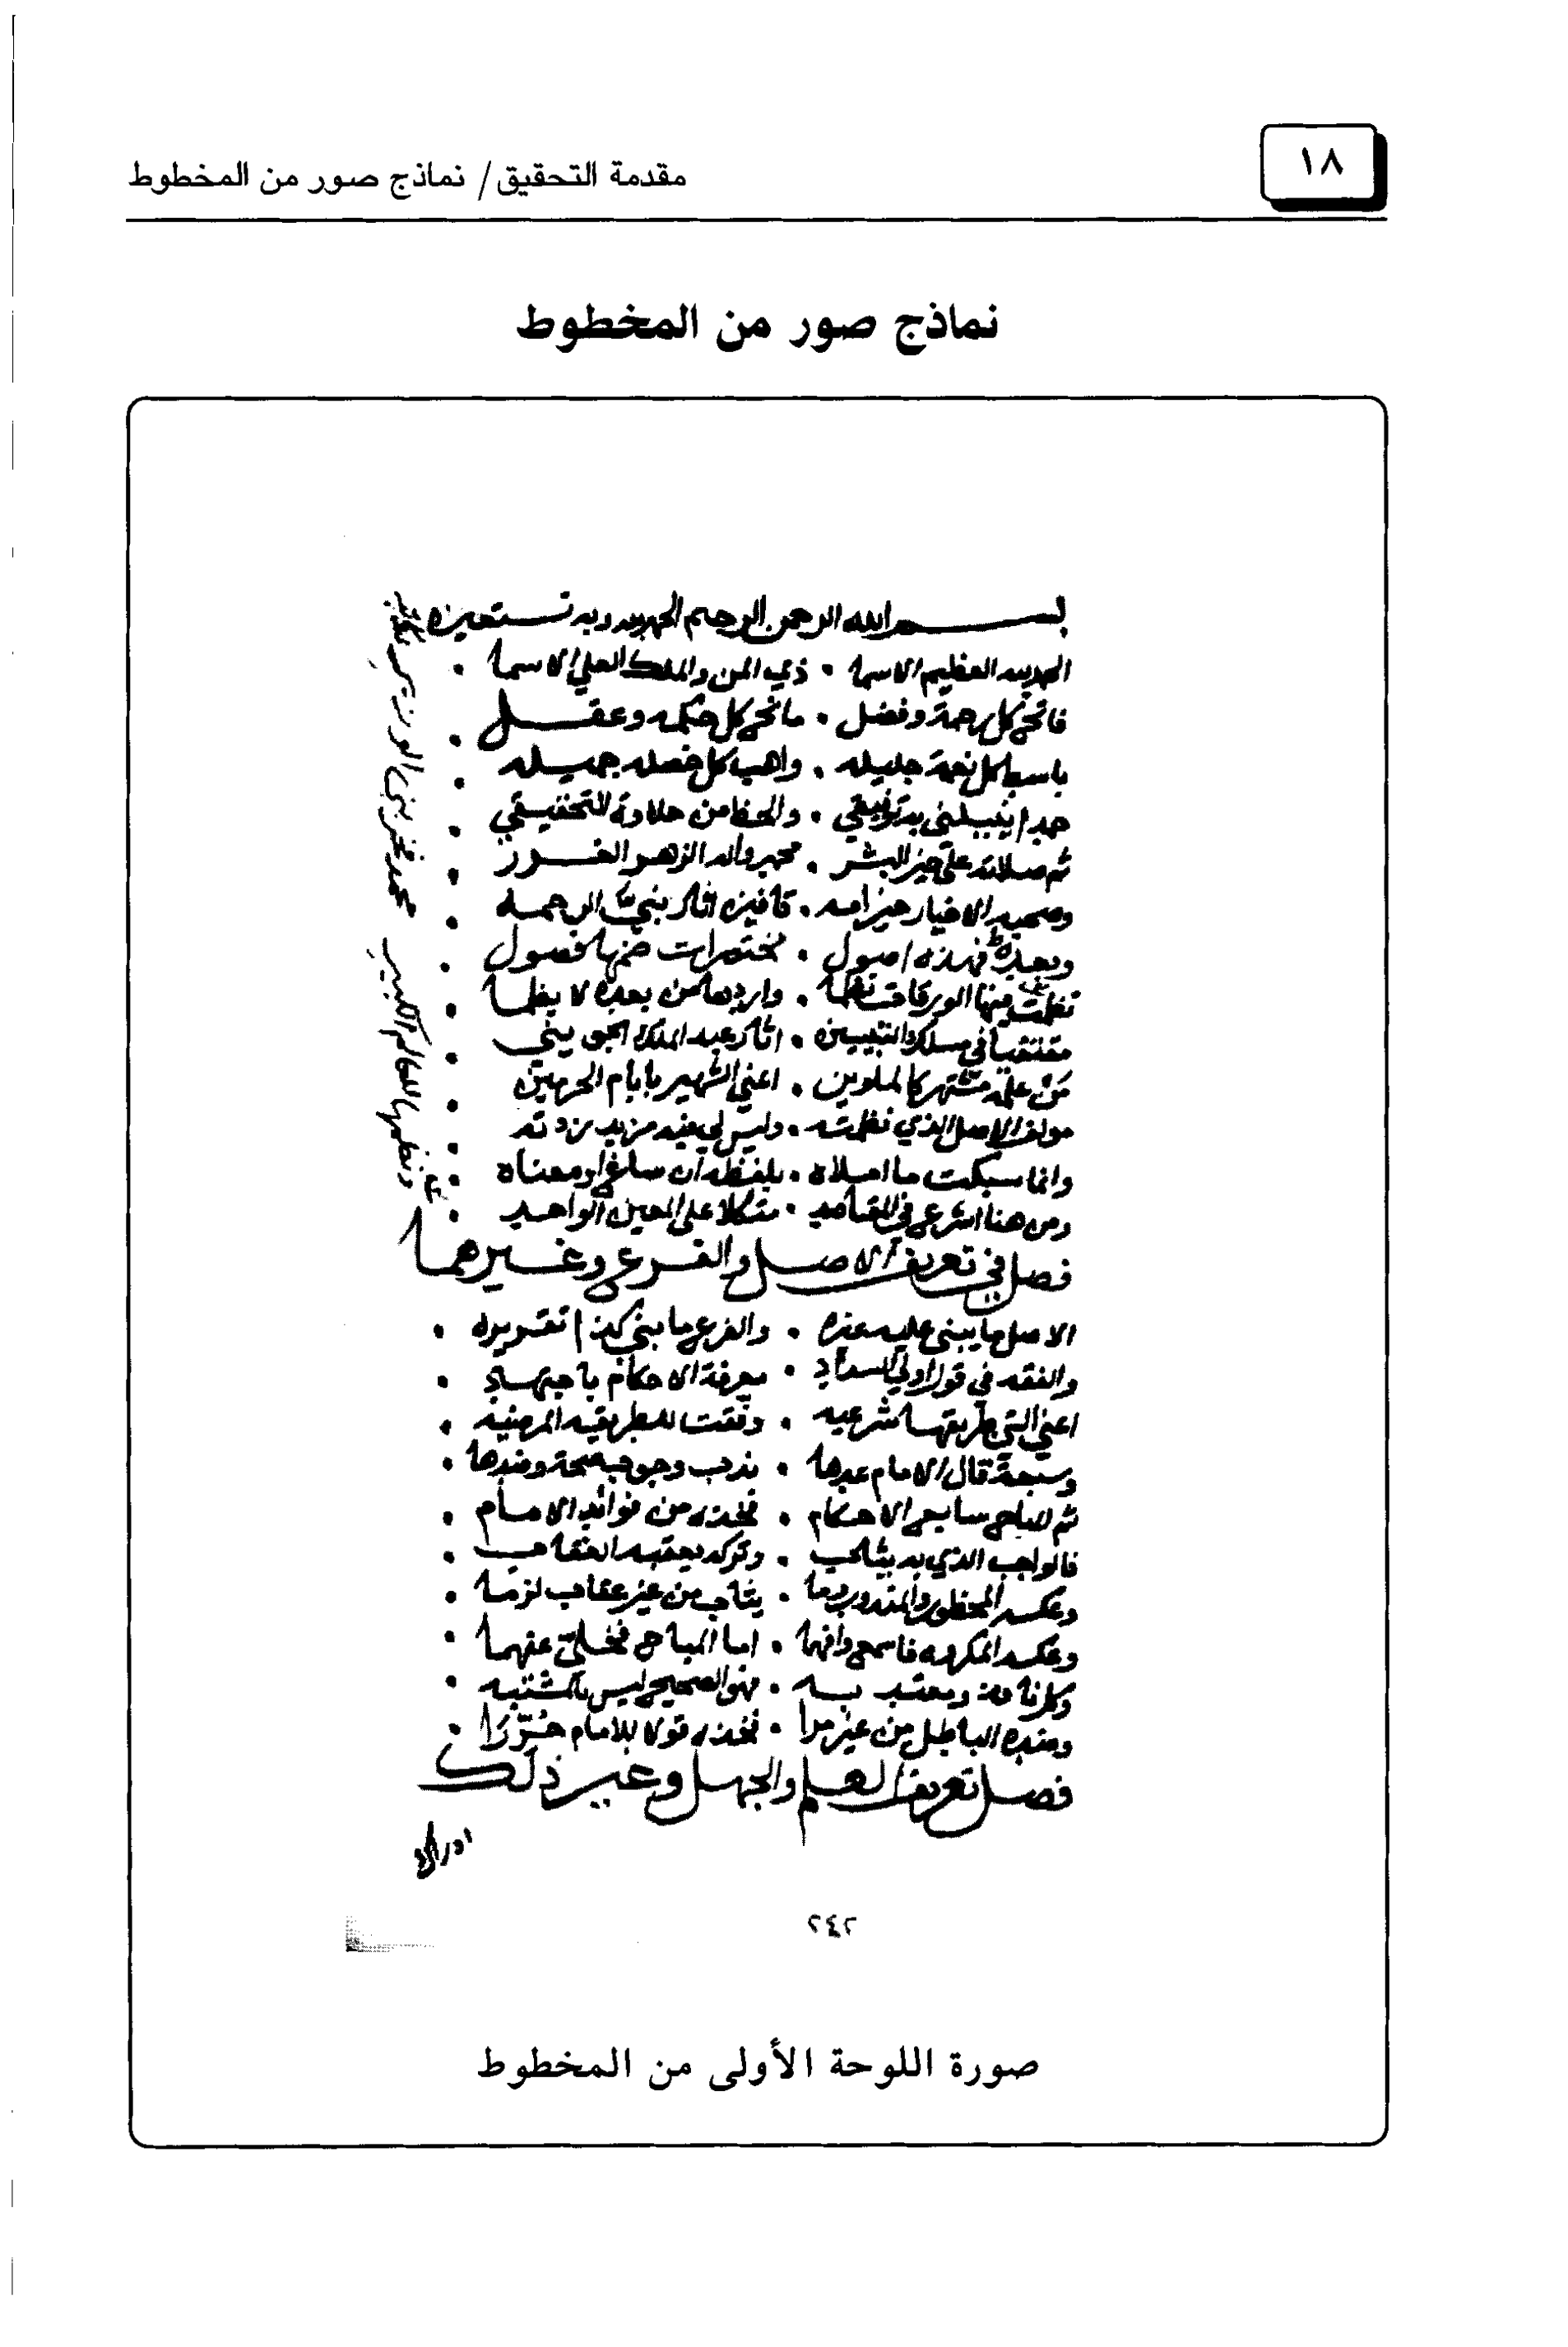 ١٨
مقدمة التحقيق/ نماذج صور من المخطوط
نماذج صور من المخطوط
بسم الله الرحمن الرحيم الحمد لله وبه نستعين
الحمد لله العظيم الاسما • ذي المن والملك العلي الاسما •
فاتح كل رحمة وفضل • مانح كل حكمه وعقل •
باسط كل نعمة جليله • واهب كل خصله جميله •
حمدا ينيلني به توفيقي • والحظ من حلاوة التحقيق •
ثم صلاته على خير البشر • محمد واله الزهر الغرر •
وصحبه الاخيار خير امه • قافين اثار نبي الرحمه •
وبعد فهذه اصول • مختصرات ضمنها فصول •
نظمت فيها الورقات نظما • وارد من بعده لا يظما •
مقتفيا في مسلك والتبيين • اثار عبد الملك الجويني •
من علمه مشتهر كالملوين • اعني الشهير بامام الحرمين •
مولف الاصل الذي نظمته • وليس لي فيه مزيد زدته •
وانما سبكت ما املاه • بلفظه ان ساغ او معناه •
ومن هنا اشرع في المقاصد • متكلا على المعين الواحد •
فصل في تعريف الاصل والفرع وغيرهما
الاصل ما يبنى عليه غيره • والفرع ما بني كذا تقريره •
والفقه في قول اولي السداد • معرفة الاحكام باجتهاد •
اعني التي طريقها شرعيه • وفقت للطريقه المرضيه •
وسبعة قال الامام عدها • ندب وجوب صحة وضدها •
ثم المباح سابع الاحكام • فخذه من فوائد الامام •
فالواجب الذي به يثاب • وتركه يعقبه العقاب •
وعكسه المحظور والمندوب ما • يثاب من غير عقاب لزما •
وعكسه المكروه فاسمع وافهما • اما المباح فخلي عنهما •
وكل نافذ ويعتد به • فهو الصحيح ليس بالمشتبه •
وضده الباطل من غير مرا • فخذه قولا للامام حررا •
فصل تعريف العلم والجهل وغير ذلك
٢٤٢
صورة اللوحة الأولى من المخطوط